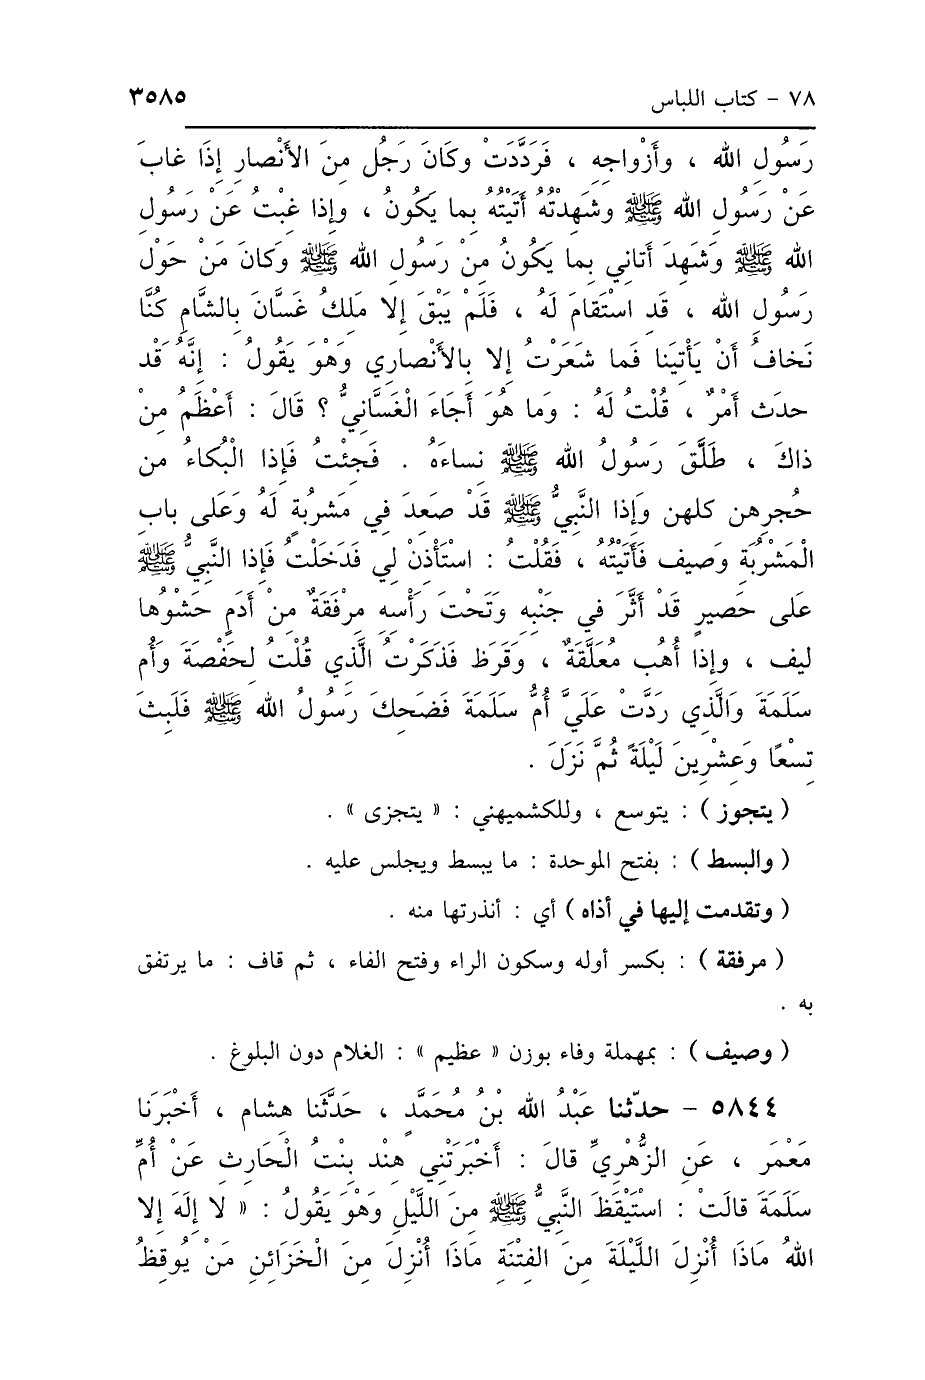 ٧٨ - كتاب اللباس ٣٥٨٥
رَسُولِ الله ، وأَزْواجِهِ ، فَرَدَّدَتْ وكَانَ رَجُلٌ مِنَ الأَنْصارِ إذَا غابَ
عَنْ رَسُولِ الله ﷺ وشَهِدْتُهُ أَتَيْتُهُ بِما يَكُونُ ، وإذا غِبْتُ عَنْ رَسُولِ
الله ﷺ وَشَهِدَ أَتانِي بِما يَكُونُ مِنْ رَسُولِ الله ﷺ وَكانَ مَنْ حَوْلَ
رَسُولِ الله ، قَدِ اسْتَقامَ لَهُ ، فَلَمْ يَبْقَ إلا مَلِكُ غَسَّانَ بِالشَّامِ كُنَّا
نَخافُ أَنْ يَأْتِيَنا فَما شَعَرْتُ إلا بِالأَنْصارِي وَهْوَ يَقُولُ : إنَّهُ قَدْ
حدَث أَمْرٌ ، قُلْتُ لَهُ : وَما هُوَ أَجَاءَ الْغَسَّانِيُّ ؟ قَالَ : أَعْظَمُ مِنْ
ذاكَ ، طَلَّقَ رَسُولُ الله ﷺ نِساءَهُ . فَجِئْتُ فَإذا الْبُكاءُ من
حُجرِهِن كلهن وَإذا النَّبِيُّ ﷺ قَدْ صَعِدَ فِي مَشرُبةٍ لَهُ وَعَلى بابِ
الْمَشْرُبَةِ وَصِيف فَأَتَيْتُهُ ، فَقُلْتُ : اسْتَأْذِنْ لِي فَدَخَلْتُ فَإذا النَّبِيُّ ﷺ
عَلى حَصِيرٍ قَدْ أَثَّرَ فِي جَنْبِهِ وَتَحْتَ رَأْسِهِ مِرْفَقَةٌ مِنْ أَدَمٍ حَشْوُها
لِيف ، وإذا أُهُب مُعَلَّقَةٌ ، وَقَرَظ فَذَكَرْتُ الَّذي قُلْتُ لِحَفْصَةَ وَأُم
سَلَمَةَ وَالَّذِي رَدَّتْ عَلَيَّ أُمُّ سَلَمَةَ فَضَحِكَ رَسُولُ الله ﷺ فَلَبِثَ
تِسْعًا وَعِشْرِينَ لَيْلَةً ثُمَّ نَزَلَ .
( يتجوز ) : يتوسع ، وللكشميهني : « يتجزى » .
( والبسط ) : بفتح الموحدة : ما يبسط ويجلس عليه .
( وتقدمت إليها في أذاه ) أي : أنذرتها منه .
( مرفقة ) : بكسر أوله وسكون الراء وفتح الفاء ، ثم قاف : ما يرتفق
به .
( وصيف ) : بمهملة وفاء بوزن « عظيم » : الغلام دون البلوغ .
٥٨٤٤ - حدّثنا عَبْدُ الله بْنُ مُحَمَّدٍ ، حَدَّثَنا هِشام ، أَخْبَرَنا
مَعْمَر ، عَنِ الزُّهْرِيِّ قالَ : أَخْبَرَتْنِي هِنْد بِنْتُ الْحَارِثِ عَنْ أُمِّ
سَلَمَةَ قالَتْ : اسْتَيْقَظَ النَّبِيُّ ﷺ مِنَ اللَّيْلِ وَهْوَ يَقُولُ : « لا إلَهَ إلا
اللهُ مَاذَا أُنْزِلَ اللَّيْلَةَ مِنَ الفِتْنَةِ مَاذَا أُنْزِلَ مِنَ الْخَزَائِنِ مَنْ يُوقِظُ